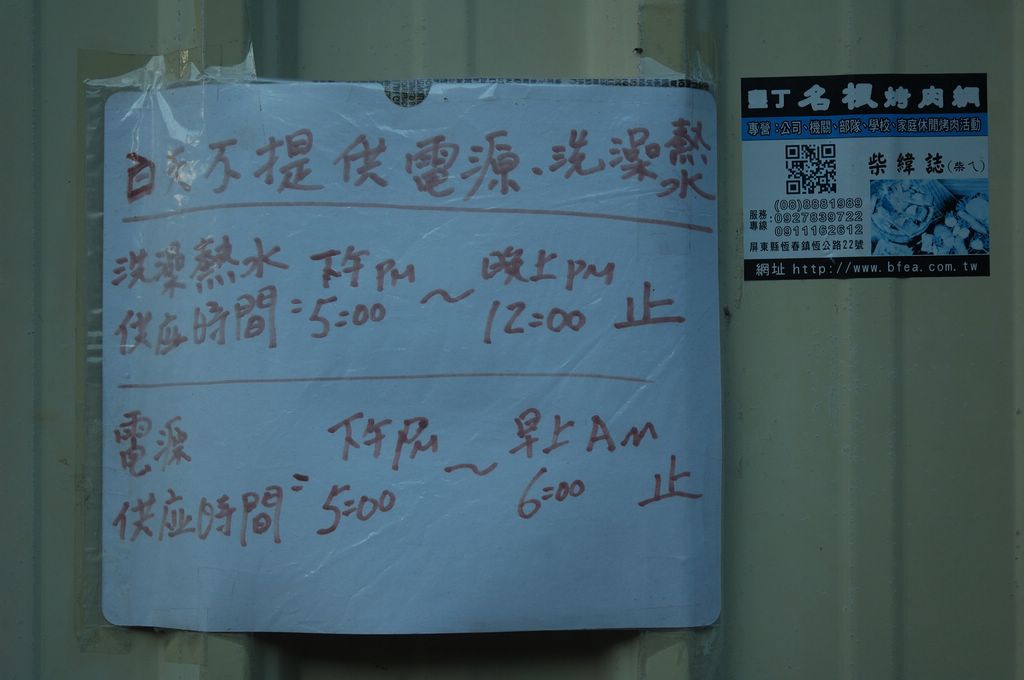 白天不提供電源、洗澡熱水
洗澡熱水 下午PM 晚上PM
供应時間= 5=00 ~ 12=00 止
電源 下午PM 早上AM
供应時間= 5=00 ~ 6=00 止
墾丁名根烤肉網
專營:公司、機關、部隊、學校、家庭休閒烤肉活動
柴緯誌(柴ㄟ)
服務專線:
(08)8881989
0927839722
0911162612
屏東縣恆春鎮恆公路22號
網址 http://www.bfea.com.tw